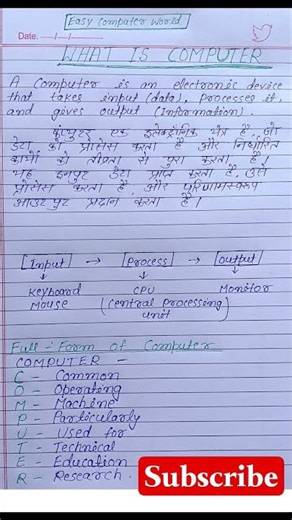 Easy computer world
Date. __/__/__
WHAT IS COMPUTER
A Computer is an electronic device
that takes input (data), processes it,
and gives output (Information).
कंप्यूटर एक इलेक्ट्रॉनिक यंत्र है, जो
डेटा को प्रोसेस करता है और निर्धारित
कार्यो को तीव्रता से पुरा करता है।
यह इनपुट डेटा प्राप्त करता है, उसे
प्रोसेस करता है, और परिणामस्वरूप
आउटपुट प्रदान करता है।
[Input] → [Process] → [Output]
Keyboard CPU Monitor
Mouse (Central processing
unit)
Full-Form of Computer
COMPUTER -
C - Common
O - Operating
M - Machine
P - Particularly
U - Used for
T - Technical
E - Education
R - Research.
Subscribe